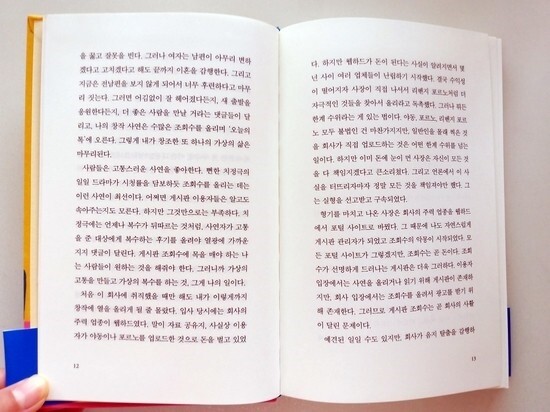 을 꿇고 잘못을 빈다. 그러나 여자는 남편이 아무리 변하
겠다고 고치겠다고 해도 끝까지 이혼을 감행한다. 그리고
지금은 전남편을 보지 않게 되어서 너무 후련하다고 마무
리 짓는다. 그러면 어김없이 잘 헤어졌다든지, 새 출발을
응원한다든지, 더 좋은 사람을 만날 거라는 댓글들이 달
리고, 나의 창작 사연은 수많은 조회수를 올리며 '오늘의
톡'에 오른다. 그렇게 내가 창조한 또 하나의 가상의 삶은
마무리된다.
사람들은 고통스러운 사연을 좋아한다. 뻔한 치정극의
일일 드라마가 시청률을 담보하듯 조회수를 올리는 데는
이런 사연이 최선이다. 어쩌면 게시판 이용자들은 알고도
속아주는지도 모른다. 하지만 그것만으로는 부족하다. 치
정극에는 언제나 복수가 뒤따르는 것처럼, 사연자가 고통
을 준 대상에게 복수하는 후기를 올려야 열광에 가까운
지지 댓글이 달린다. 게시판 조회수에 목을 매야 하는 나
는 사람들이 원하는 것을 해줘야 한다. 그러니까 가상의
고통을 만들고 가상의 복수를 하는 것, 그게 나의 일이다.
처음 이 회사에 취직했을 때만 해도 내가 이렇게까지
창작에 열을 올리게 될 줄 몰랐다. 입사 당시에는 회사의
주력 업종이 웹하드였다. 말이 자료 공유지, 사실상 이용
자가 야동이나 포르노를 업로드한 것으로 돈을 벌고 있었
12
다. 하지만 웹하드가 돈이 된다는 사실이 알려지면서 몇
년 사이 여러 업체들이 난립하기 시작했다. 결국 수익성
이 떨어지자 사장이 직접 나서서 리벤지 포르노처럼 더
자극적인 것들을 찾아서 올리라고 독촉했다. 그러나 뭐든
한계 수위라는 게 있는 법이다. 야동, 포르노, 리벤지 포르
노 모두 불법인 건 마찬가지지만, 일반인을 몰래 찍은 것
을 회사가 직접 업로드하는 것은 어떤 한계 수위를 넘는
일이었다. 하지만 이미 돈에 눈이 먼 사장은 자신이 모든 것
을 다 책임지겠다고 큰소리쳤다. 그리고 언론에서 이 사실
을 터뜨리자마자 정말 모든 것을 책임져야만 했다. 그
는 실형을 선고받고 구속되었다.
형기를 마치고 나온 사장은 회사의 주력 업종을 웹하드
에서 포털 사이트로 바꿨다. 그 때문에 나도 자연스럽게
게시판 관리자가 되었고 조회수의 악몽이 시작되었다. 모
든 포털 사이트가 그렇겠지만, 조회수는 곧 돈이다. 조회
수가 선명하게 드러나는 게시판은 더더욱 그러하다. 이용자
입장에서는 사연을 올리거나 읽기 위해 게시판이 존재하
지만, 회사 입장에서는 조회수를 올려서 광고를 받기 위
해 존재한다. 그러므로 게시판 조회수는 곧 회사의 사활
이 달린 문제이다.
예견된 일일 수도 있지만, 회사가 음지 탈출을 감행하
13